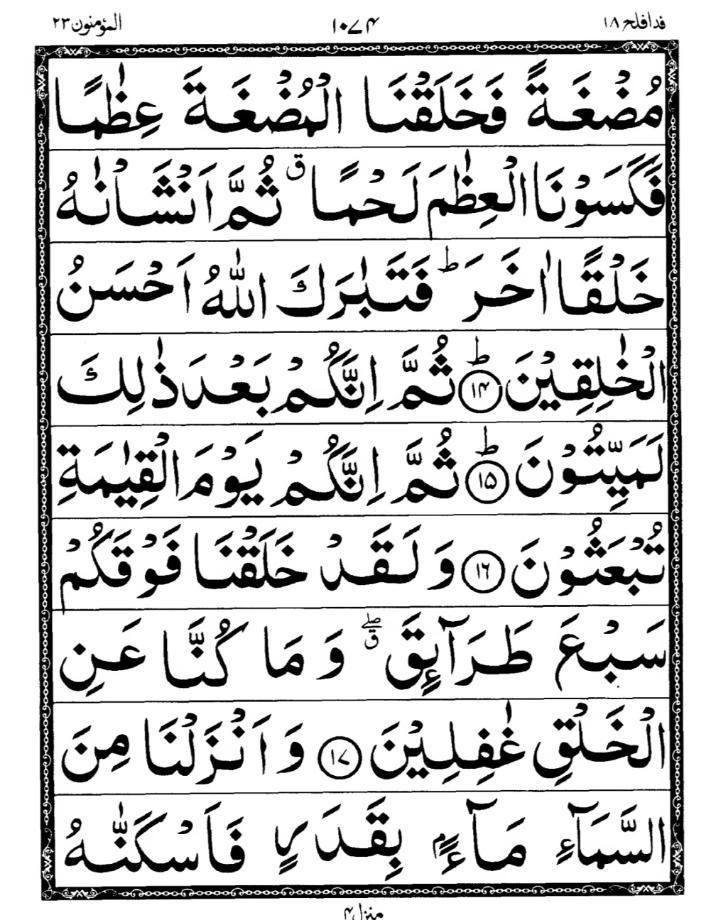 المؤمنون ٢٣ ١٠٧٤ قدافلح ١٨
مُضْغَةً فَخَلَقْنَا الْمُضْغَةَ عِظٰمًا
فَكَسَوْنَا الْعِظٰمَ لَحْمًا ۗق ثُمَّ اَنْشَاْنٰهُ
خَلْقًا اٰخَرَ ؕ فَتَبٰرَكَ اللّٰهُ اَحْسَنُ
الْخٰلِقِيْنَ ؕ ﴿۱۴﴾ ثُمَّ اِنَّكُمْ بَعْدَ ذٰلِكَ
لَمَيِّتُوْنَ ؕ ﴿۱۵﴾ ثُمَّ اِنَّكُمْ يَوْمَ الْقِيٰمَةِ
تُبْعَثُوْنَ ﴿۱۶﴾ وَ لَقَدْ خَلَقْنَا فَوْقَكُمْ
سَبْعَ طَرَآئِقَ ۖق وَ مَا كُنَّا عَنِ
الْخَلْقِ غٰفِلِيْنَ ﴿۱۷﴾ وَ اَنْزَلْنَا مِنَ
السَّمَآءِ مَآءًۢ بِقَدَرٍ فَاَسْكَنّٰهُ
منزل ۴